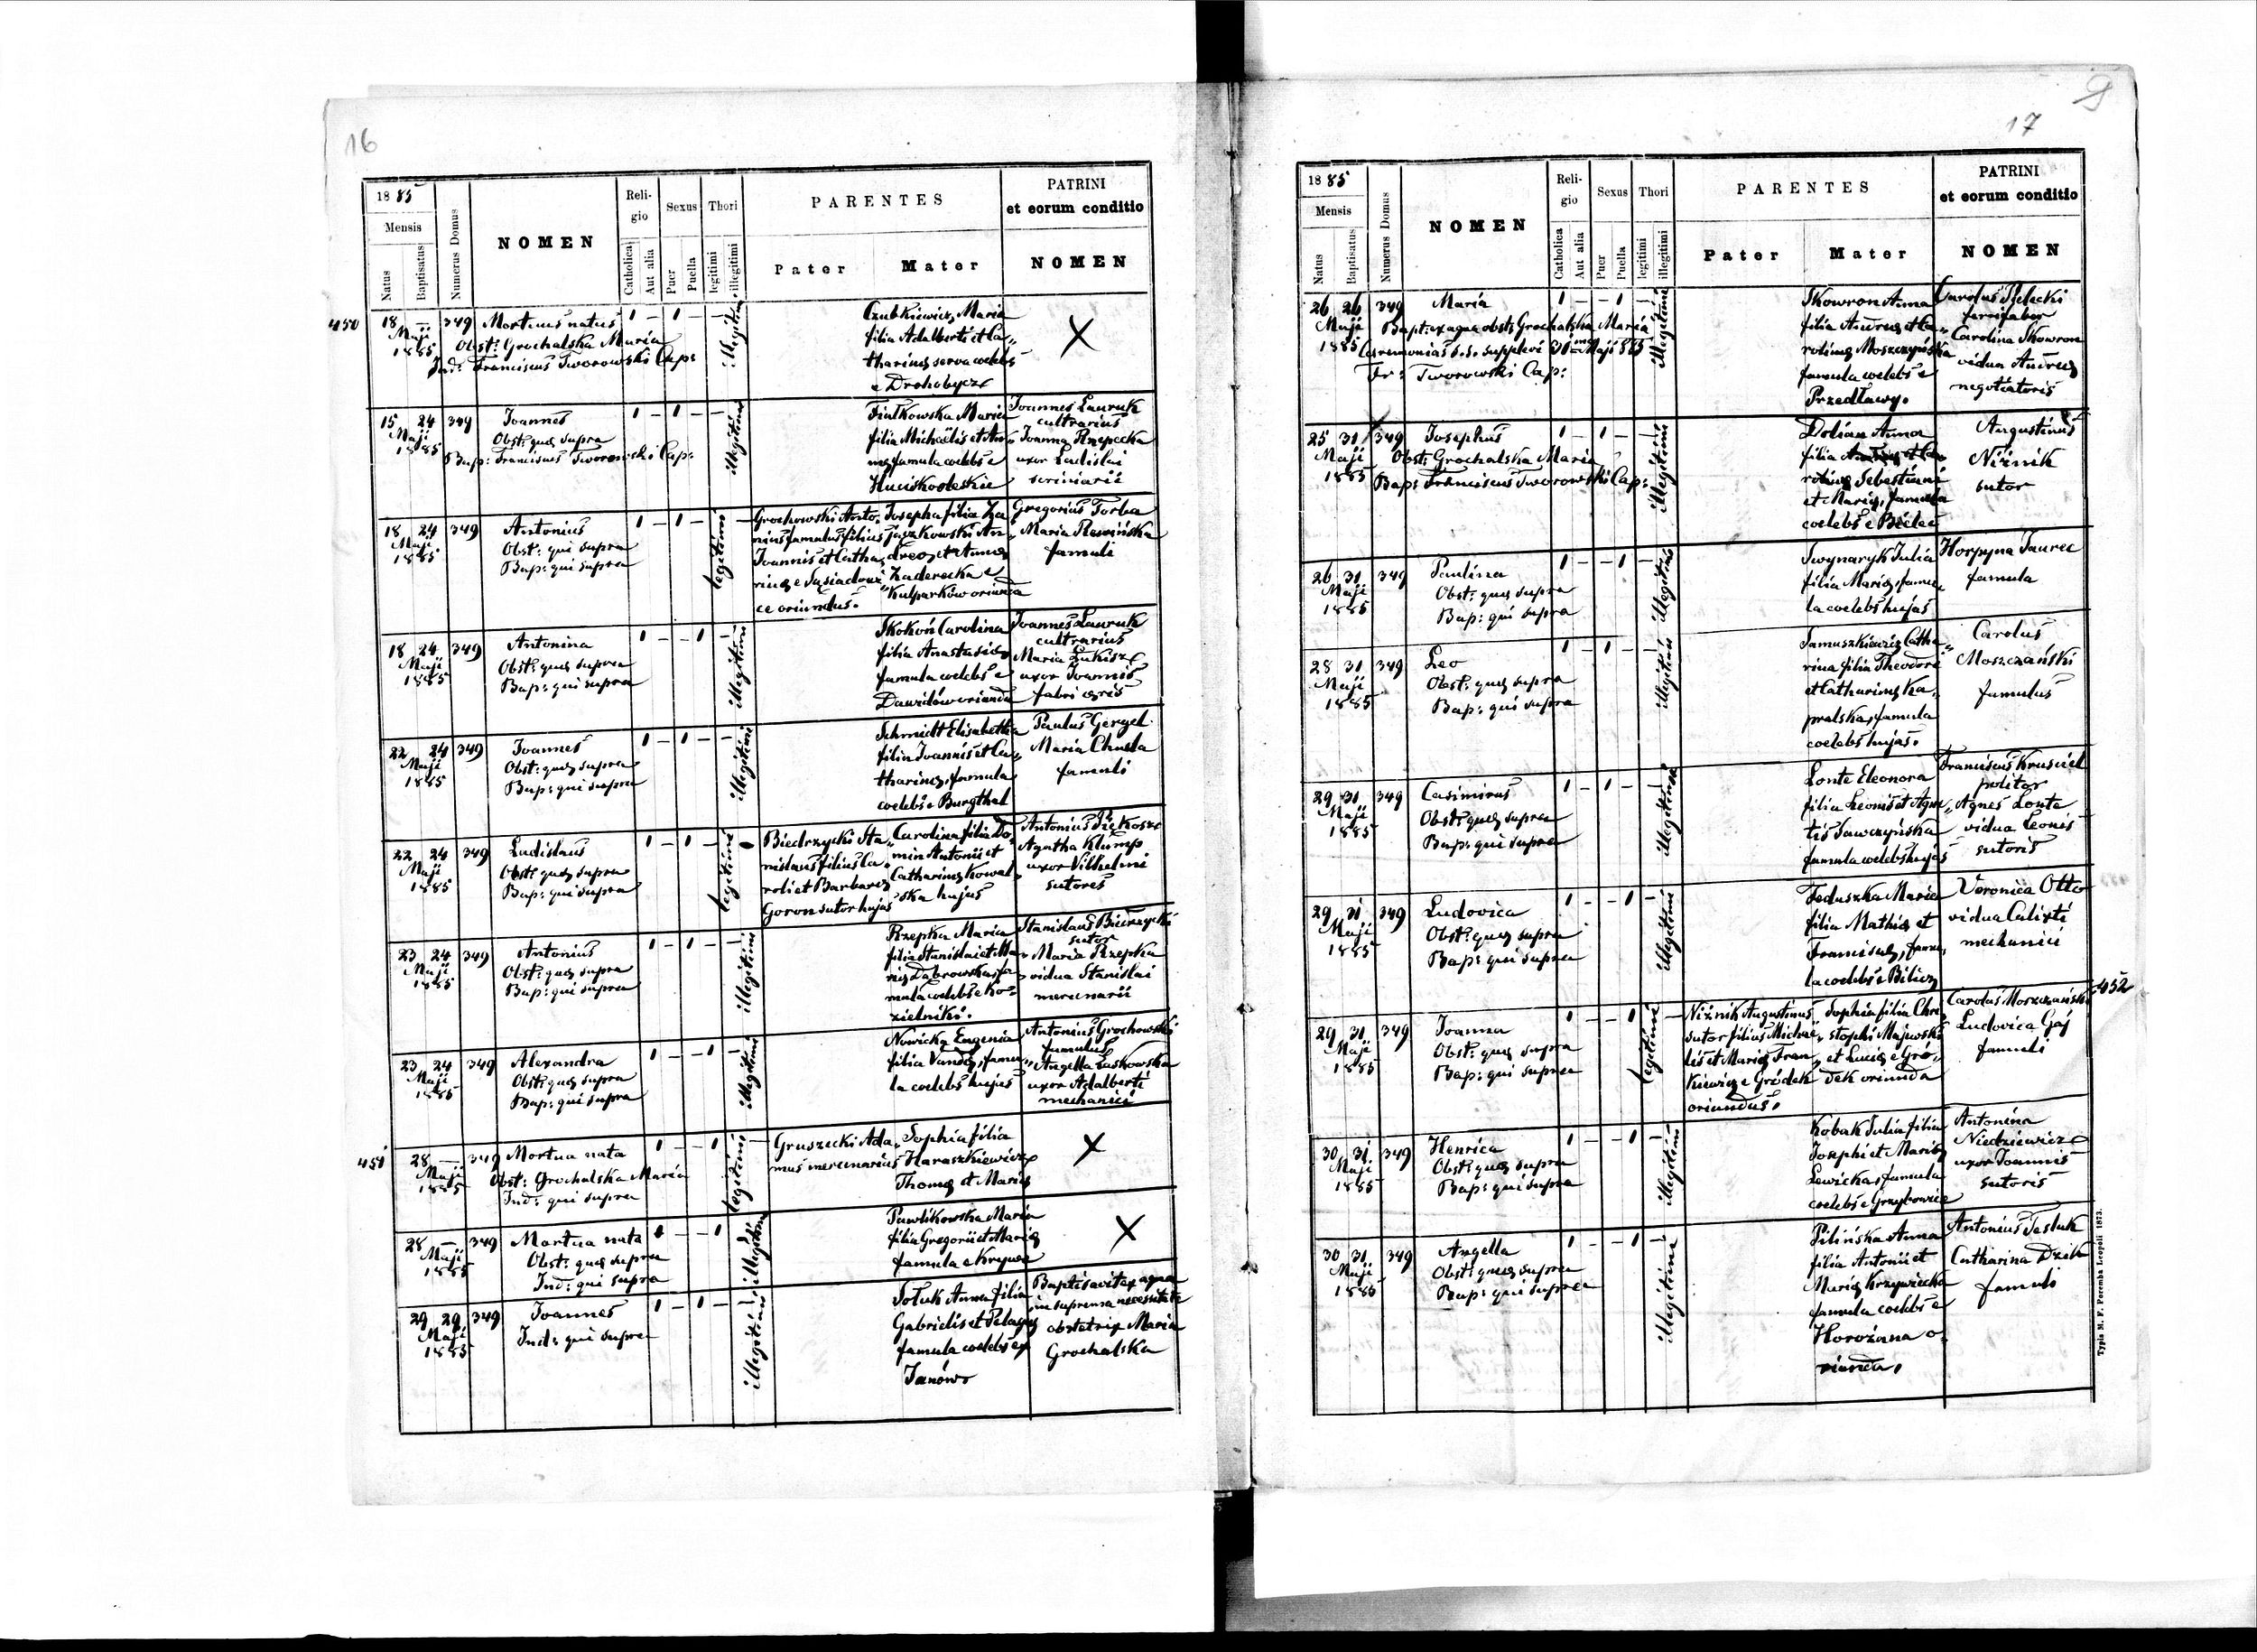 16
1885
Mensis
Natus
Baptisatus
Numerus Domus
NOMEN
Reli-
gio
Catholica
Aut alia
Sexus
Puer
Puella
Thori
legitimi
illegitimi
PARENTES
Pater
Mater
PATRINI
et eorum conditio
NOMEN
450
18 —
Maji
1885
349
Mortuus natus
Obst: Grochalska Maria
Ind: Franciscus Tworowski Cap:
1 — 1 — —
illegitimi
Czubkiewicz Maria
filia Adalberti et Ca„
tharinę serva coelebs
e Drohobycz
X
15 24
Maji
1885
349
Joannes
Obst: quę supra
Bap: Franciscus Tworowski Cap:
1 — 1 — —
illegitimi
Fiałkowska Maria
filia Michaëlis et An„
nę famula coelebs e
Huciskooleskie
Joannes Lauruk
cultrarius
Joanna Rzepecka
uxor Ladislai
scriniarii
18 24
Maji
1885
349
Antonius
Obst: qui supra
Bap: qui supra
1 — 1 —
legitimi
—
Grochowski Anto„
nius famulus filius
Joannis et Catha„
rinę e Sąsiadowi„
ce oriundus.
Josepha filia Za„
jączkowski An„
dreę et Anna
Zaderecka e
Kulparków oriunda
Gregorius Torba
Maria Rewińska
famuli
18 24
Maji
1885
349
Antonina
Obst: quę supra
Bap: qui supra
1 — — 1 —
illegitimi
Skokoń Carolina
filia Anastasię
famula coelebs e
Dawidów oriunda
Joannes Lauruk
cultrarius
Maria Łukisz
uxor Joannis
fabri ęris
22 24
Maji
1885
349
Joannes
Obst: quę supra
Bap: qui supra
1 — 1 — —
illegitimi
Schmidt Elisabetha
filia Joannis et Ca„
tharinę, famula
coelebs e Burgthal
Paulus Gergel
Maria Chuda
famuli
22 24
Maji
1885
349
Ladislaus
Obst: quę supra
Bap: qui supra
1 — 1 —
legitimi
Biedrzycki Sta„
nislaus filius Ca„
roli et Barbarę
Goron sutor hujas
Carolina filia Do„
min Antonii et
Catharinę Kowal„
ska hujas
Antonius Piękosz
Agatha Klump
uxor Vilhelmi
sutores
23 24
Maji
1885
349
Antonius
Obst: quę supra
Bap: qui supra
1 — 1 — —
illegitimi
Rzepka Maria
filia Stanislai et Ma„
rię Dąbrowska, fa„
mula coelebs e Ko„
zielniki.
Stanislaus Biedrzycki
sutor
Maria Rzepka
vidua Stanislai
mercenarii
23 24
Maji
1885
349
Alexandra
Obst: quę supra
Bap: qui supra
1 — — 1 —
illegitimi
Nowicka Eugenia
filia Vandę, famu„
la coelebs hujas
Antonius Grochowski
famulus
Angella Laskowska
uxor Adalberti
mechanici
451
28 —
Maji
1885
349
Mortua nata
Obst: Grochalska Maria
Ind: qui supra
1 — — 1
legitimi
—
Gruszecki Ada„
mus mercenarius
Sophia filia
Haraszkiewicz
Thomę et Marię
X
28 —
Maji
1885
349
Mortua nata
Obst: quę supra
Ind: qui supra
1 — — 1
illegitimi
Pawlikowska Maria
filia Gregorii et Marię
famula e Krywe
X
29 29
Maji
1885
349
Joannes
Ind: qui supra
1 — 1 — —
illegitimi
Tołuk Anna filia
Gabrielis et Pelagię
famula coelebs ex
Janów
Baptisavit ex aqua
in suprema necessitate
obstetrix Maria
Grochalska
9
17
1885
Mensis
Natus
Baptisatus
Numerus Domus
NOMEN
Reli-
gio
Catholica
Aut alia
Sexus
Puer
Puella
Thori
legitimi
illegitimi
PARENTES
Pater
Mater
PATRINI
et eorum conditio
NOMEN
26 26
Maji
1885
349
Maria
Bapt: ex aqua obst: Grochalska Maria
Cęremonias s.s. supplevi 31ma Maji 885
Fr: Tworowski Cap:
1 — — 1 —
illegitimi
Skowron Anna
filia Andreę et Ca„
rolinę Moszczyńska
famula coelebs e
Przedławy.
Carolus
ferrifaber
Carolina Skowron
vidua Andreę
negotiatoris
25 31
Maji
1885
349
Josephus
Obst: Grochalska Maria
Bap: Franciscus Tworowski Cap:
1 — 1 — —
illegitimi
Dolian Anna
filia
Sebestiani
et Marię, famula
coelebs e
Augustinus
Niźnik
sutor
26 31
Maji
1885
349
Paulina
Obst: quę supra
Bap: qui supra
1 — — 1 —
illegitimi
Swynaryk Julia
filia Marię, famu„
la coelebs hujas
Horpyna Taurec
famula
28 31
Maji
1885
349
Leo
Obst: quę supra
Bap: qui supra
1 — 1 — —
illegitimi
Januszkiewicz Catha„
rina filia Theodori
et Catharinę Ka„
pralska, famula
coelebs hujas.
Carolus
Moszczański
famulus
29 31
Maji
1885
349
Casimirus
Obst: quę supra
Bap: qui supra
1 — 1 — —
illegitimi
Lonte Eleonora
filia Leonis et Agne„
tis Sawczyńska
famula coelebs hujas
Franciscus Krusciel
politor
Agnes Lonte
vidua Leonis
sutoris
29 31
Maji
1885
349
Ludovica
Obst: quę supra
Bap: qui supra
1 — — 1 —
illegitimi
Feduszka Maria
filia Mathię et
Franciscę, famu„
la coelebs e Bilicz
Veronica Otto
vidua Calixti
mechanici
452
29 31
Maji
1885
349
Joanna
Obst: quę supra
Bap: qui supra
1 — — 1
legitimi
—
Niźnik Augustinus
sutor filius Michaë„
lis et Marię Fran„
kiewicz e Gródek
oriundus.
Sophia filia Chri„
stophi Majewski
et Lucię e Gró„
dek oriunda
Carolus Moszczański
Ludovica Gaj
famuli
30 31
Maji
1885
349
Henrica
Obst: quę supra
Bap: qui supra
1 — — 1 —
illegitimi
Kobak Julia filia
Josephi et Marię
Lewicka, famula
coelebs e Grzybowice
Antonina
Niedzwiewicz
uxor Joannis
sutoris
30 31
Maji
1885
349
Angella
Obst: quę supra
Bap: qui supra
1 — — 1 —
illegitimi
Pilińska Anna
filia Antonii et
Marię Krzywiecka
famula coelebs e
Horożana o„
riunda.
Antonius Tasluk
Catharina Dzik
famuli
Typis M. F. Poremba Leopoli 1873.